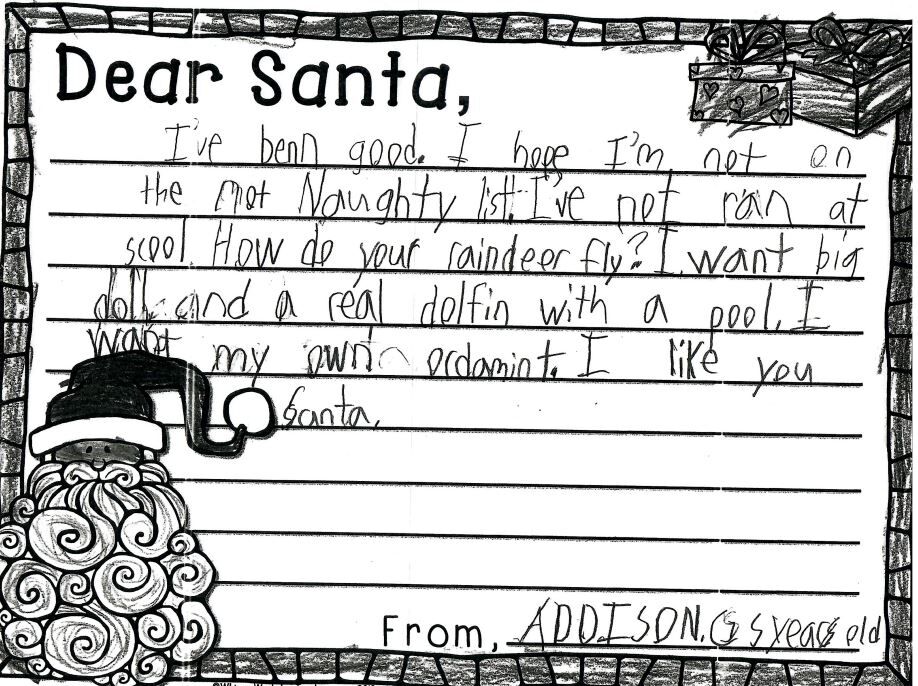 Dear Santa,
I've benn good. I hope I'm not on
the Naughty list. I've not ran at
scool. How do your raindeer fly? I want big
doll and a real dolfin with a pool. I
want my own ordamint. I like you
Santa.
From, ADDISON. G 5 years old